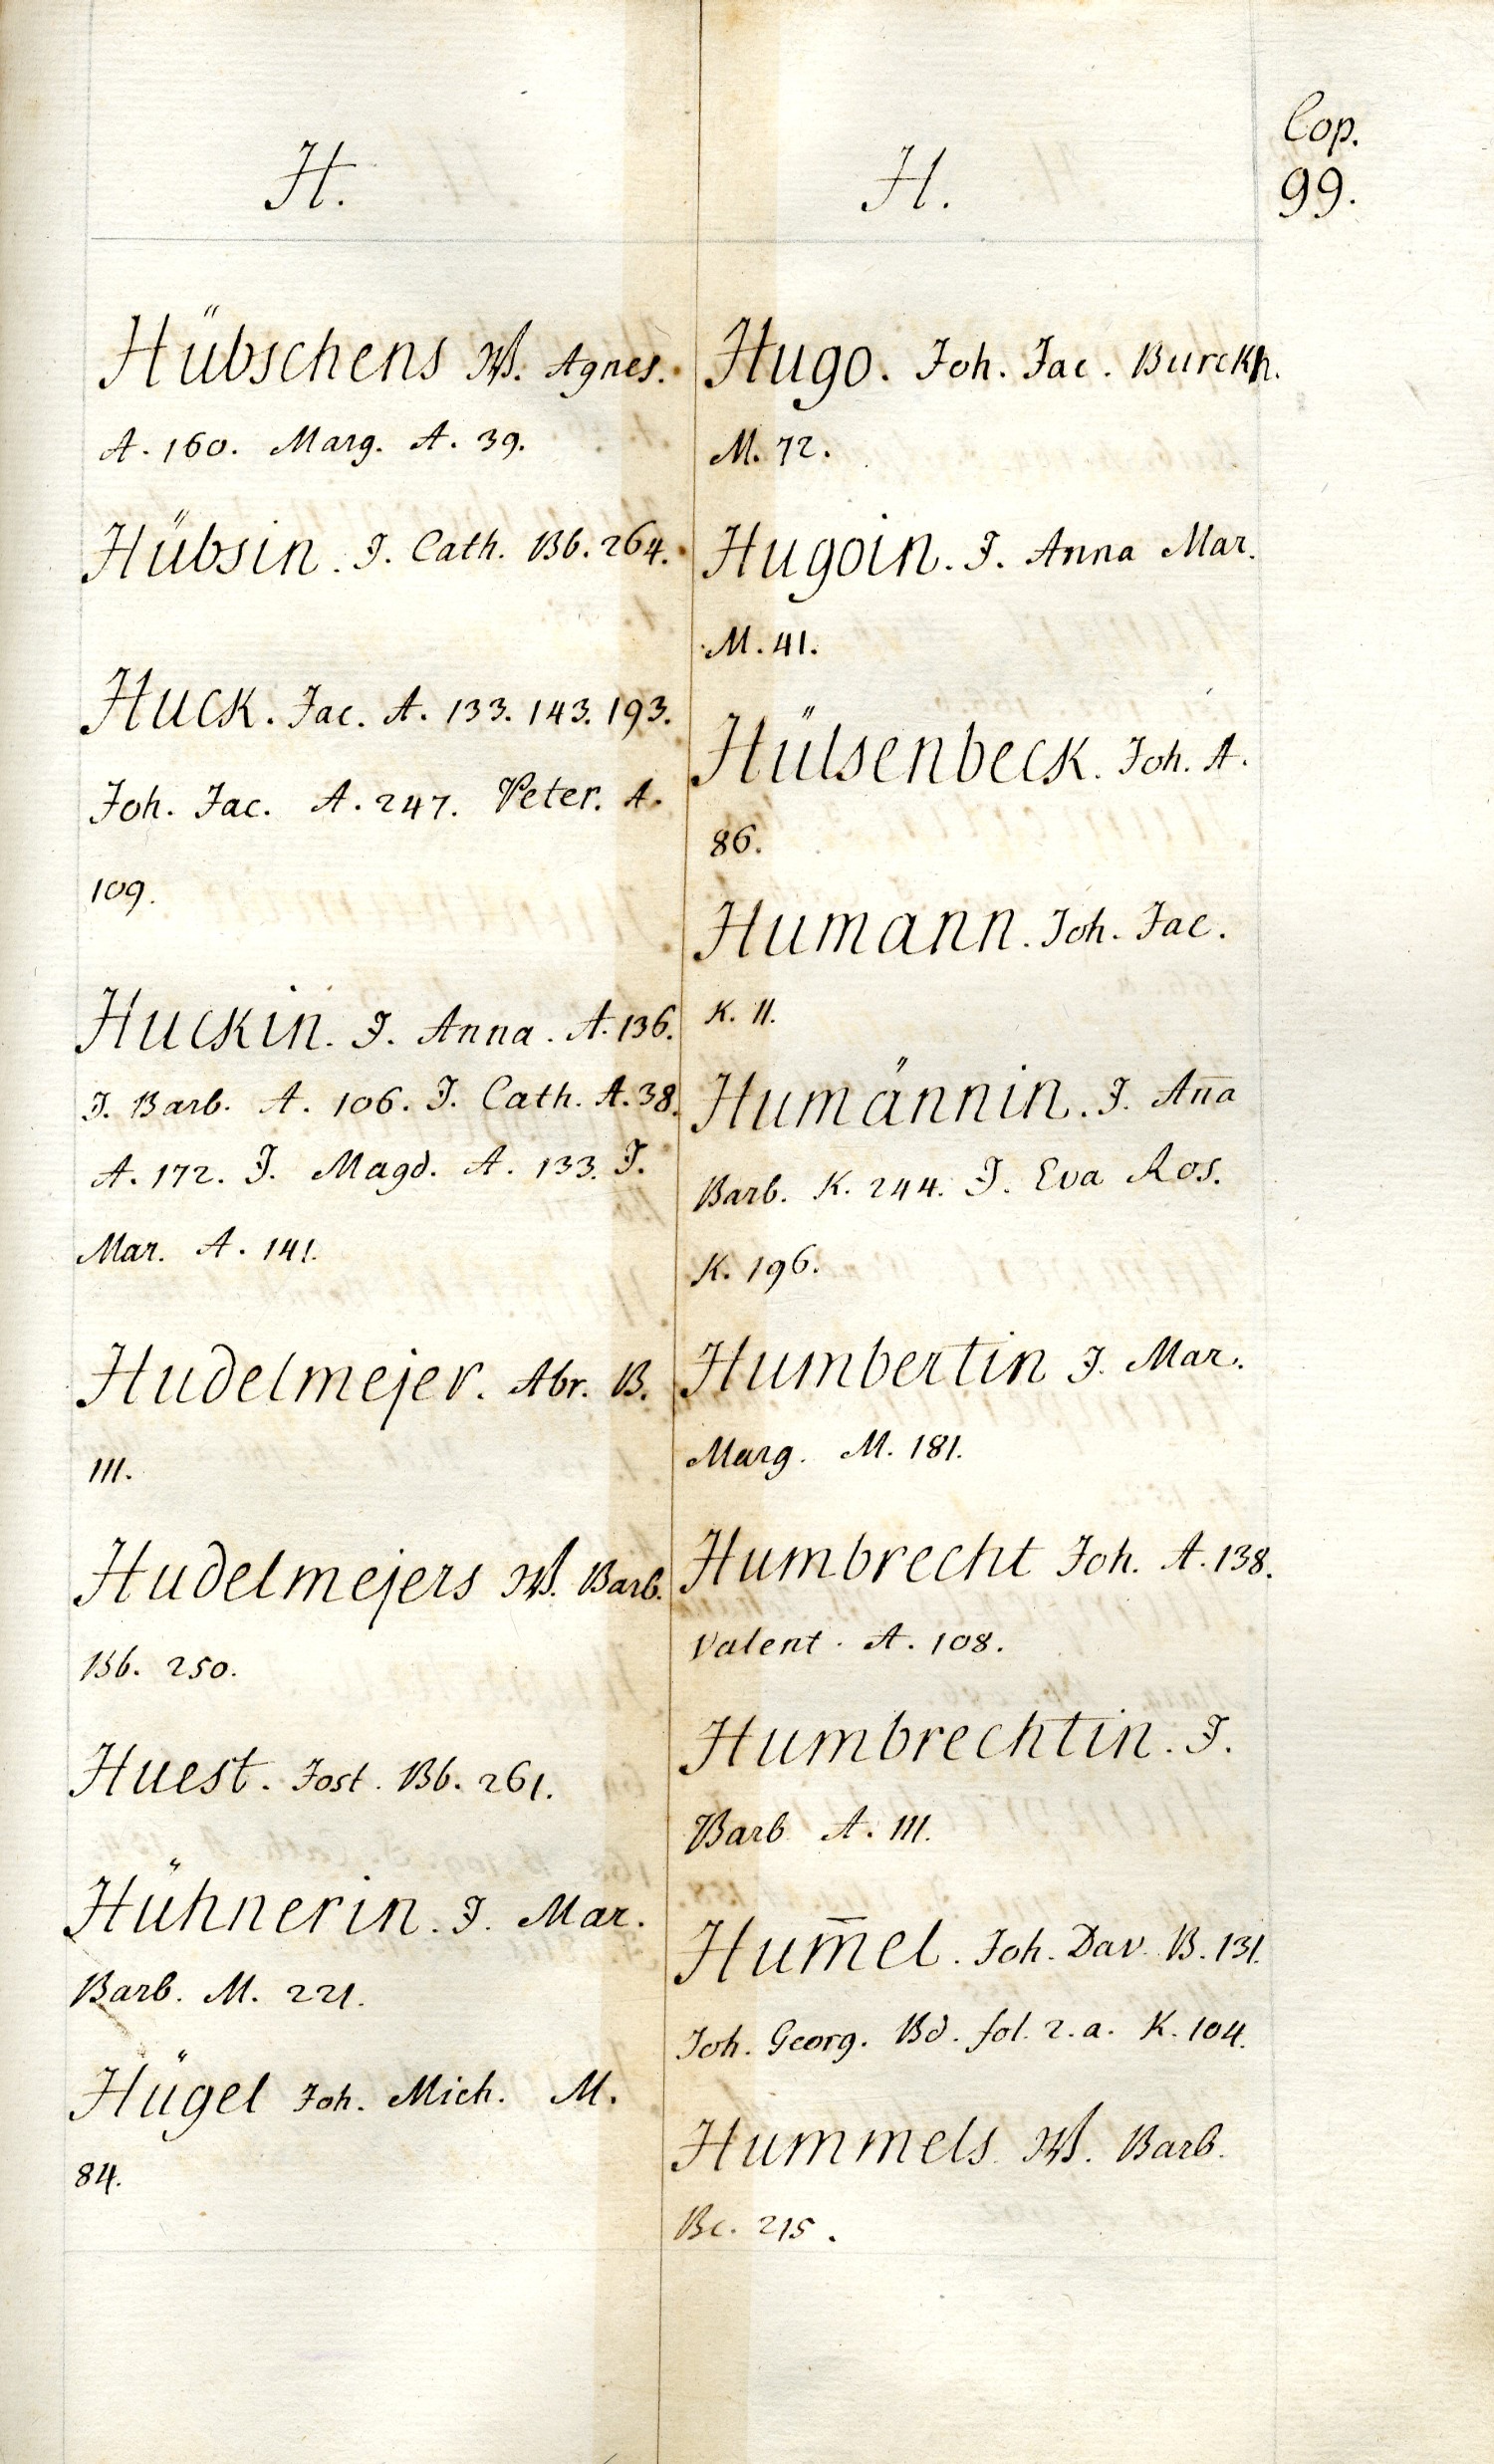 Cop.
99.
H.
Hübschens W. Agnes.
A. 160. Marg. A. 39.
Hübsin. J. Cath. Bb. 264.
Huck. Jac. A. 133. 143. 193.
Joh. Jac. A. 247. Peter. A.
109.
Huckin. J. Anna. A. 136.
J. Barb. A. 106. J. Cath. A. 38.
A. 172. J. Magd. A. 133. J.
Mar. A. 141.
Hudelmejer. Abr. B.
111.
Hudelmejers W. Barb.
Bb. 250.
Huest. Jost. Bb. 261.
Hühnerin. J. Mar.
Barb. M. 221.
Hügel Joh. Mich. M.
84.
H.
Hugo. Joh. Jac. Burckh.
M. 72.
Hugoin. J. Anna Mar.
M. 41.
Hülsenbeck. Joh. A.
86.
Humann. Joh. Jac.
K. 11.
Humännin. J. An̄a
Barb. K. 244. J. Eva Ros.
K. 196.
Humbertin J. Mar.
Marg. M. 181.
Humbrecht Joh. A. 138.
Valent. A. 108.
Humbrechtin. J.
Barb A. 111.
Hum̄el. Joh. Dav. B. 131.
Joh. Georg. Bd. fol. 2. a. K. 104.
Hummels. W. Barb.
Bc. 215.